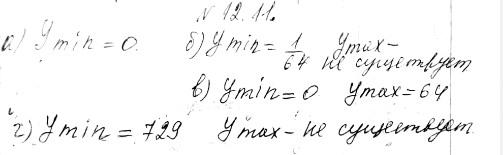 N 12.11.
а) Ymin = 0. б) Ymin = 1/64 Ymax - не существует
в) Ymin = 0 Ymax = 64
г) Ymin = 729 Ymax - не существует.